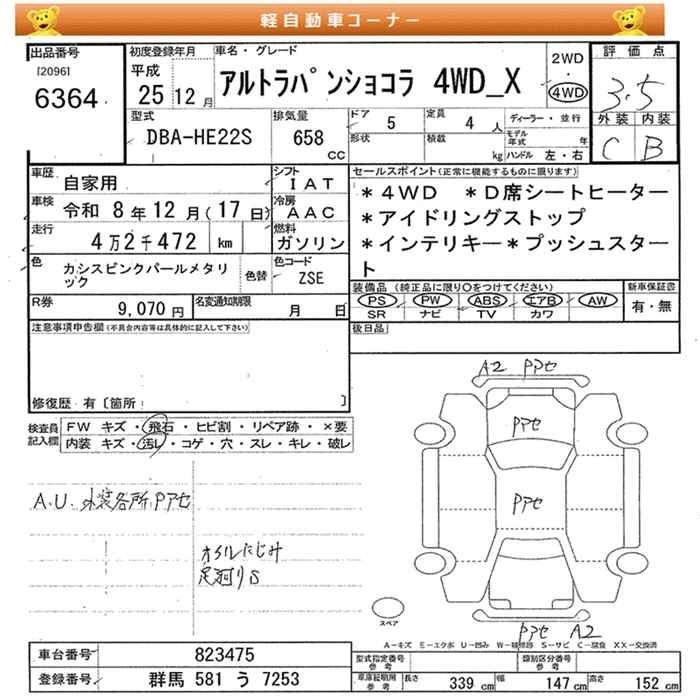 軽自動車コーナー
出品番号
[2096]
6364
初度登録年月
平成
25 12 月
車名・グレード
アルトラパンショコラ 4WD_X
2WD
・
4WD
評価点
3.5
外装 内装
C B
型式
DBA-HE22S
排気量
658
CC
ドア
5
定員
4 人
形状
積載
kg
ディーラー・並行
モデル
年式 年
ハンドル 左・右
車歴
自家用
シフト
IAT
車検
令和 8年 12月(17日)
冷房
AAC
走行
4万2千472 km
燃料
ガソリン
色
カシスピンクパールメタリ
ック
色替
色コード
ZSE
R券
9,070 円
名変通知期限
月 日
セールスポイント(正常に機能するものに限ります)
*4WD *D席シートヒーター
*アイドリングストップ
*インテリキー*プッシュスター
ト
装備品(純正品に限り〇をつけてください)
PS PW ABS エアB AW
SR ナビ TV カワ
新車保証書
有・無
後日品
注意事項申告欄(不具合内容等は具体的に記入して下さい)
修復歴 有〔箇所: 〕
検査員
記入欄
FW キズ・飛石・ヒビ割・リペア跡・×要
内装 キズ・汚レ・コゲ・穴・スレ・キレ・破レ
A.U. 外装各所Pアセ
オイルにじみ
足廻りS
A2 Pアセ
Pアセ
Pアセ
Pアセ A2
スペア
A-キズ E-エクボ U-凹み W-補修跡 S-サビ C-腐食 XX-交換済
車台番号
823475
登録番号
群馬 581 う 7253
型式指定番号
参考
類別区分番号
参考
車庫証明用
参考
長さ 339 cm 幅 147 cm 高さ 152 cm